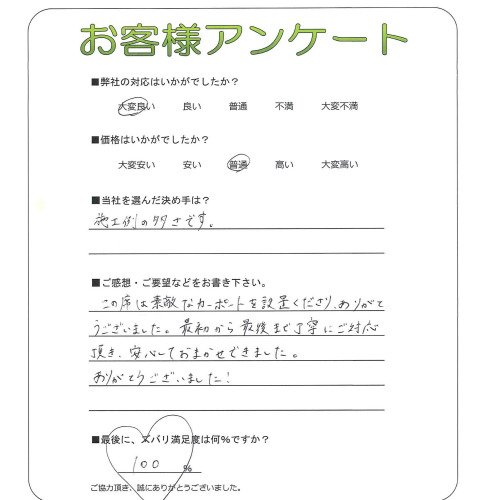 お客様アンケート
■弊社の対応はいかがでしたか？
大変良い 良い 普通 不満 大変不満
■価格はいかがでしたか？
大変安い 安い 普通 高い 大変高い
■当社を選んだ決め手は？
施工例の多さです。
■ご感想・ご要望などをお書き下さい。
この度は素敵なカーポートを設置くださり、ありがと
うございました。最初から最後まで丁寧にご対応
頂き、安心しておまかせできました。
ありがとうございました！
■最後に、ズバリ満足度は何%ですか？
100 %
ご協力頂き、誠にありがとうございました。